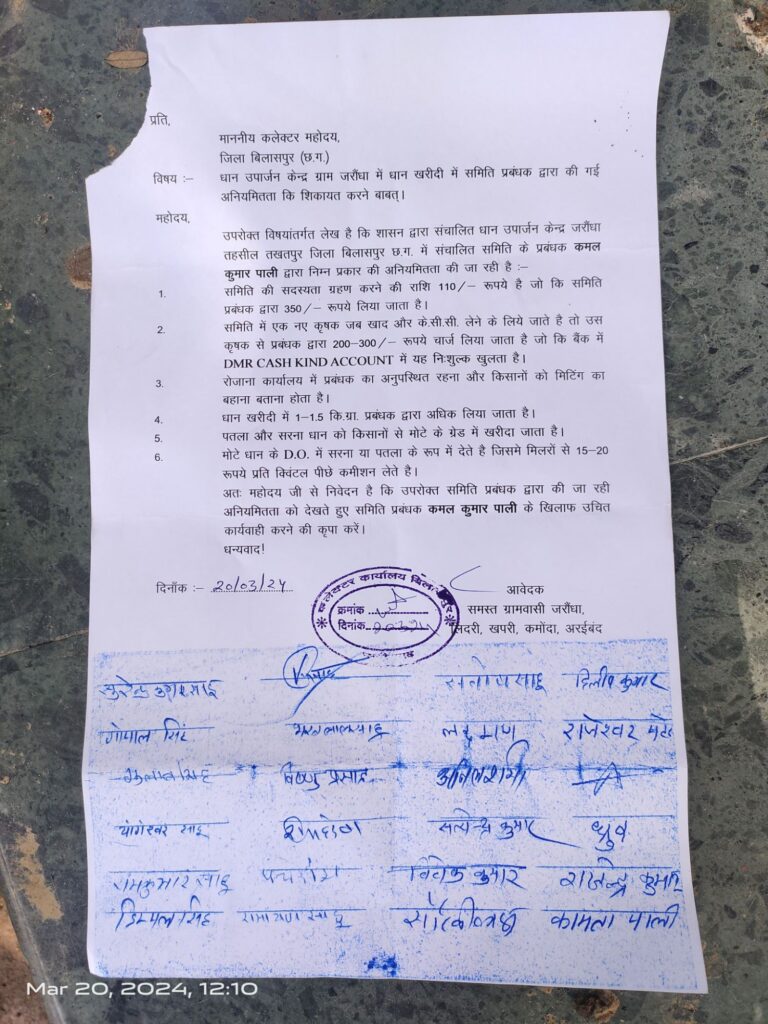 प्रति,
माननीय कलेक्टर महोदय,
जिला बिलासपुर (छ.ग.)
विषय :– धान उपार्जन केन्द्र ग्राम जरौंधा में धान खरीदी में समिति प्रबंधक द्वारा की गई
अनियमितता कि शिकायत करने बाबत्।
महोदय,
उपरोक्त विषयांतर्गत लेख है कि शासन द्वारा संचालित धान उपार्जन केन्द्र जरौंधा
तहसील तखतपुर जिला बिलासपुर छ.ग. में संचालित समिति के प्रबंधक कमल
कुमार पाली द्वारा निम्न प्रकार की अनियमितता की जा रही है :–
1. समिति की सदस्यता ग्रहण करने की राशि 110/– रूपये है जो कि समिति
प्रबंधक द्वारा 350/– रूपये लिया जाता है।
2. समिति में एक नए कृषक जब खाद और के.सी.सी. लेने के लिये जाते है तो उस
कृषक से प्रबंधक द्वारा 200–300/– रूपये चार्ज लिया जाता है जो कि बैंक में
DMR CASH KIND ACCOUNT में यह निःशुल्क खुलता है।
3. रोजाना कार्यालय में प्रबंधक का अनुपस्थित रहना और किसानों को मिटिंग का
बहाना बताना होता है।
4. धान खरीदी में 1–1.5 कि.ग्रा. प्रबंधक द्वारा अधिक लिया जाता है।
5. पतला और सरना धान को किसानों से मोटे के ग्रेड में खरीदा जाता है।
6. मोटे धान के D.O. में सरना या पतला के रूप में देते है जिसमे मिलरों से 15–20
रूपये प्रति क्विंटल पीछे कमीशन लेते है।
अतः महोदय जी से निवेदन है कि उपरोक्त समिति प्रबंधक द्वारा की जा रही
अनियमितता को देखते हुए समिति प्रबंधक कमल कुमार पाली के खिलाफ उचित
कार्यवाही करने की कृपा करें।
धन्यवाद!
दिनॉंक :– 20/03/24
कलेक्टर कार्यालय बिलासपुर
क्रमांक
दिनांक
आवेदक
समस्त ग्रामवासी जरौंधा,
लिदरी, खपरी, कमोंदा, अरईबंद
सन्तोष साहू दिलीप कुमार
गोपाल सिंह लक्ष्मण राजेश्वर
विष्णु प्रसाद अनिल शर्मा
योगेश्वर साहू सत्येन्द्र कुमार ध्रुव
रामकुमार साहू विवेक कुमार राजेन्द्र कुमार
डिम्पल सिंह रामायण साहू कामता पाली
Mar 20, 2024, 12:10